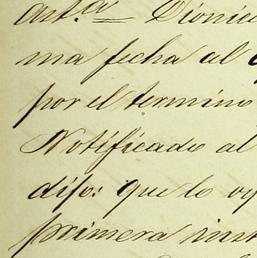 Art.a Dionic
ma fecha al
por el termino
Notificado al
dijo: que lo oy
primera inst